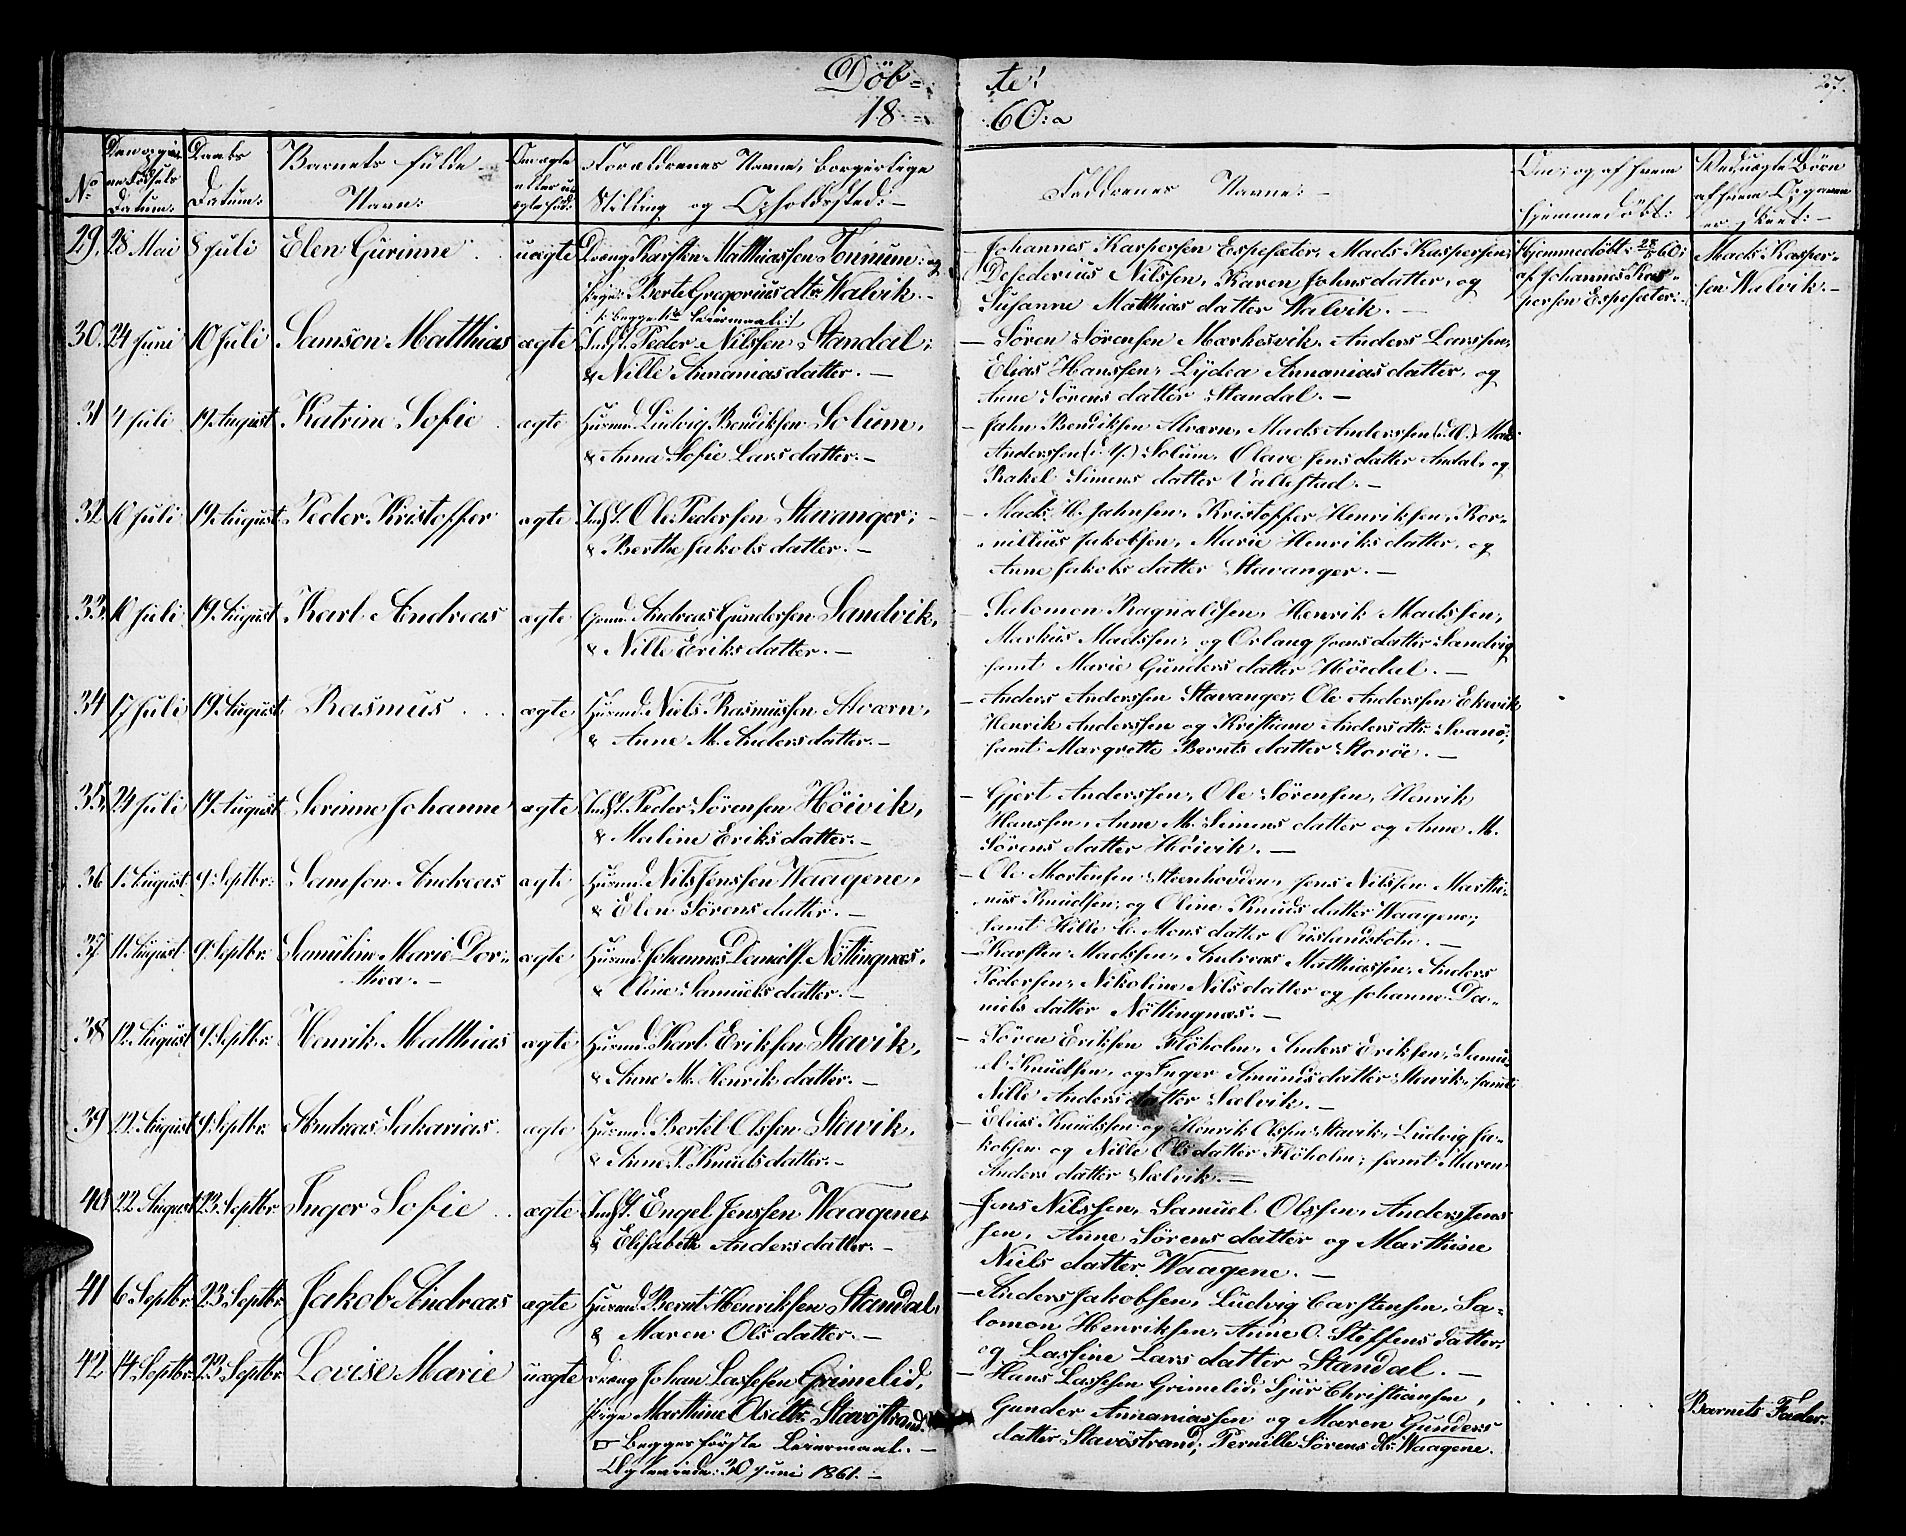 Döb= te!
18 60:
27.
No
Den opgiv-
ne Födsels
Datum:
Daabs
Datum:
Barnets fulde
Navn:
Om ægte
eller u-
ægte föd:
Forældrenes Navne, borgerlige
Stilling og Opholdssted:
Faddrenes Navne:
Om, og af hvem
hjemmedöbt:
Ved uægte Börn
af hvem Opgaven
er skeet:
29. 28 Mai 8 Juli Elen Gurinne uægte Dreng Karsten Matthiassen Tonnum: og
Pige: Berte Gregorius dtr: Walvik.
/: begges 1ste Leiermaal:/
Johannes Kaspersen Espesæter, Mads Kaspersen,
Desederius Nilssen, Karen Johnsdatter, og
Susanne Matthias datter Walvik.
Hjemmedöbt 28/5 60:
af Johannes Kas-
persen Espesæter.
Mads Kasper-
sen Walvik.
30. 24 Juni 10 Juli Samson Matthias ægte Indst. Peder Nilssen Standal;
& Nille Annanias datter.
Sören Sörensen Markesvik, Anders Larssen,
Elias Hanssen, Lydea Annanias datter, og
Anne Sörens datter Standal.
31 4 Juli 19 August Katrine Sofie ægte Husmd. Ludvig Bendiksen Solum,
& Anna Sofie Lars datter.
Jahn Bendiksen Alværn, Mads Anderssen (d:Æ.) Mads
Anderssen (d:Y.) Solum, Olave Jens datter Andal, og
Rakel Simens datter Vallestad.
32 10 Juli 19 August Peder Kristoffer ægte Indst. Ole Pedersen Stavanger;
& Berthe Jakobs datter.
Mads H. Jahnsen, Kristoffer Henriksen, Kor-
nelius Jakobsen, Marie Henriks datter, og
Anne Jakobs datter Stavanger.
33. 11 Juli 19 August Karl Andreas ægte Gaardmd. Andreas Gundersen Sandvik,
& Nille Eriks datter.
Salomon Ragnaldsen, Henrik Madssen,
Markus Madssen, og Orlaug Jens datter Sandvig
samt Marie Gunders datter Höidal.
34 17 Juli 19 August Rasmus ægte Husmd. Niels Rasmussen Alværn,
& Anne M. Anders datter.
Anders Anderssen Stavanger, Ole Anderssen Ekevik,
Henrik Anderssen og Kristiane Anders dtr: Svanö,
samt Margrette Bernts datter Storöe.
35. 24 Juli 19 August Serinne Johanne ægte Indst. Peder Sörensen Höivik,
& Maline Eriks datter.
Gjert Anderssen, Ole Sörensen, Henrik
Hanssen, Anne M. Simens datter og Anne M.
Sörens datter Höivik.
36 1. August 9. Septbr: Samson Andreas ægte Husmd. Nils Jenssen Waagene,
& Elen Sörens datter.
Ole Mortensen Steenhovden, Jens Nilssen, Marthi-
nus Knudsen, og Oline Knuds datter Waagene;
samt Hille C. Mons datter Ouslandsbotn.
37. 11 August 9. Septbr. Samuline Marie Dor-
thea. ægte Husmd. Johannes Danielss. Nöttingnæs,
& Eline Samuels datter.
Karsten Madssen, Andreas Matthiassen, Anders
Pedersen, Nikoline Nils datter og Johanne Da-
niels datter Nöttingnæs.
38 12. August 9. Septbr. Henrik Matthias ægte Husmd. Karl Eriksen Stavik,
& Anne M. Henriks datter.
Sören Eriksen Flöholm, Anders Eriksen, Samu-
el Knudsen, og Inger Amunds datter Stavik, samt
Nille Anders datter Sælvik.
39 22. August 9. Septbr. Andreas Sakarias ægte Husmd. Bertel Olssen Stavik,
& Anne P. Knuds datter.
Elias Knudssen og Henrik Olssen Stavik, Ludvig Ja-
kobsen og Nille Ols datter Flöholm; samt Maren
Anders datter Sælvik.
40 22. August 23. Septbr. Inger Sofie ægte Indst. Engel Jenssen Waagene,
& Elisabeth Anders datter.
Jens Nilssen, Samuel Olssen, Anders Jens-
sen, Anne Sörens datter og Marthine
Niels datter Waagene.
41 6 Septbr. 23. Septbr. Jakob Andreas ægte Husmd. Bernt Henriksen Standal,
& Maren Ols datter.
Anders Jakobsen, Ludvig Carstensen, Sa-
lomon Henriksen, Anne O. Steffens datter,
og Lassine Lars datter Standal.
42 14. Septbr. 23. Septbr. Lovise Marie uægte Dreng Johan Lassesen Grimelid,
Pige Marthine Olsdtr: Stavöstrand.
Begges förste Leiermaal.
Ægteviede: 30 Juni 1861.
Hans Lassesen Grimelid, Sjur Christiansen,
Gunder Annaniassen og Maren Gunders
datter Stavöstrand; Pernille Sörens dtr: Waagene.
Barnets Fader.